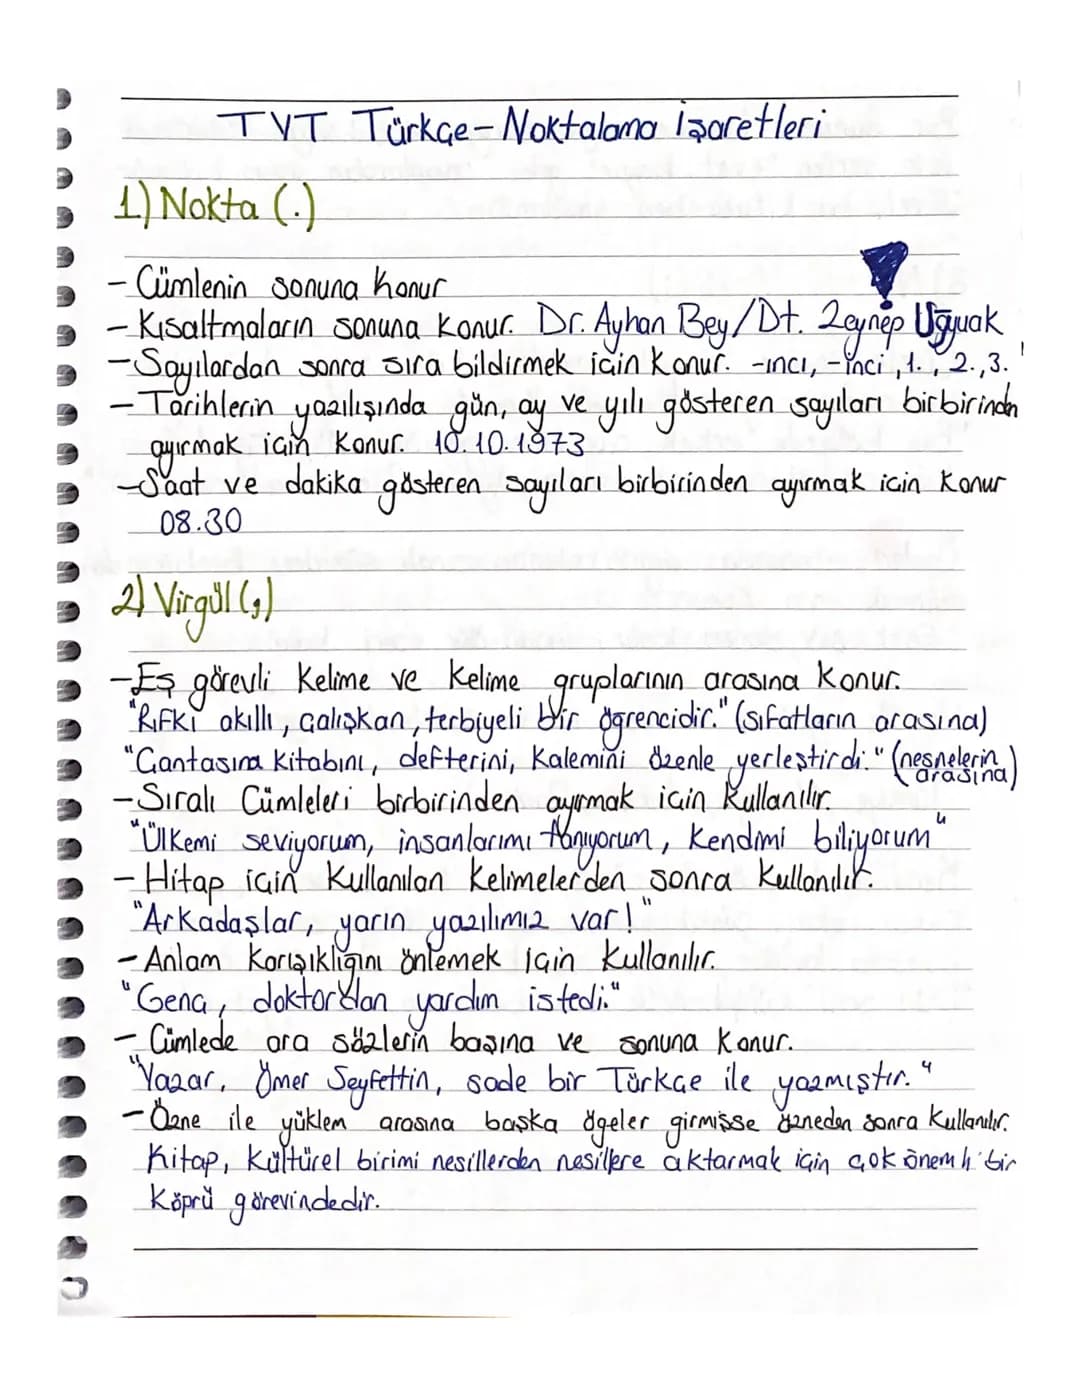 TYT Türkçe-Noktalama İşaretleri
1) Nokta (.)
- Cümlenin sonuna konur
- Kısaltmaların sonuna konur. Dr. Ayhan Bey/Dt. Zeynep Uğyuak
- Sayılardan sonra sıra bildirmek için konur. -ıncı, -inci, 1., 2., 3.
- Tarihlerin yazılışında gün, ay ve yılı gösteren sayıları birbirinden
ayırmak için konur. 10.10.1973
- Saat ve dakika gösteren sayıları birbirinden ayırmak için konur
08.30
2) Virgül (,)
- Eş görevli kelime ve kelime gruplarının arasına konur.
"Rıfkı akıllı, çalışkan, terbiyeli bir öğrencidir." (sıfatların arasına)
"Çantasına kitabını, defterini, kalemini özenle yerleştirdi." (nesnelerin
arasına)
- Sıralı Cümleleri birbirinden ayırmak için kullanılır.
"Ülkemi seviyorum, insanlarımı tanıyorum, kendimi biliyorum"
- Hitap için kullanılan kelimelerden sonra kullanılır.
"Arkadaşlar, yarın yazılımız var!"
- Anlam karışıklığını önlemek için kullanılır.
"Genç, doktordan yardım istedi."
- Cümlede ara sözlerin başına ve sonuna konur.
"Yazar, Ömer Seyfettin, sade bir Türkçe ile yazmıştır."
- Özne ile yüklem arasına başka ögeler girmişse özneden sonra kullanılır.
Kitap, kültürel birimi nesillerden nesillere aktarmak için çok önemli bir
köprü görevindedir.